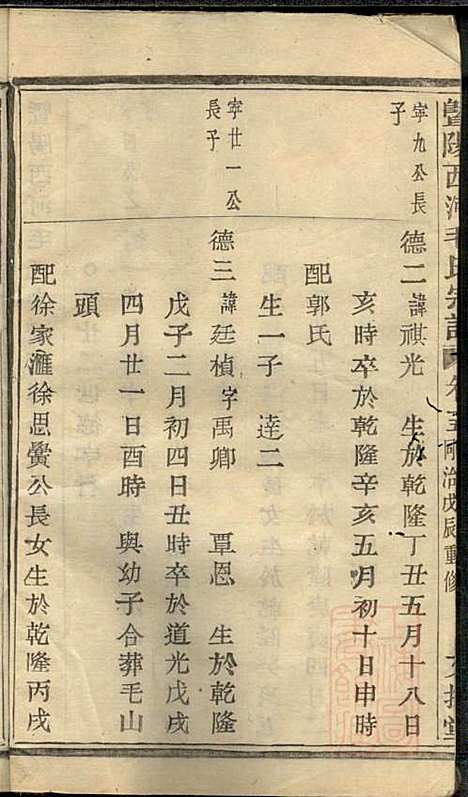 暨陽西河毛氏宗譜 卷 同治戊辰重修
寧九公長
子
德二諱祺光 生於乾隆丁丑五月十八日
亥時卒於乾隆辛亥五月初十日申時
配郭氏
生一子 達二
寧廿一公
長子
德三諱廷楨字禹卿 覃恩 生於乾隆
戊子二月初四日丑時卒於道光戊戌
四月廿一日酉時 與幼子合葬毛山
頭
配徐家滙徐思黌公長女生於乾隆丙戌